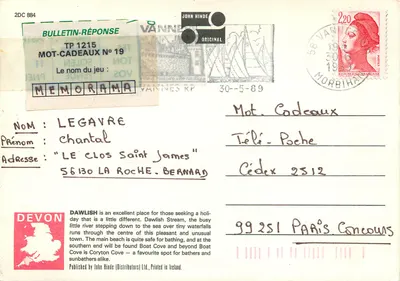 2DC 884
BULLETIN-RÉPONSE
TP 1215
MOT-CADEAUX No 19
Le nom du jeu :
MEMORAMA
JOHN HINDE
ORIGINAL
VANNES
VANNES RP
30--5-89
DE VANNES
MORBIHAN
2,20
NOM : LEGAVRE
Prénom : Chantal
Adresse : "LE CLOS Saint James"
56130 LA ROCHE-BERNARD
Mot. Cadeaux
Télé-Poche
Cédex 2512
99251 PARIS Concours
DEVON
DAWLISH is an excellent place for those seeking a holi-
day that is a little different. Dawlish Stream, the busy
little river stepping down to the sea over tiny waterfalls
runs through the centre of this pleasant and unusual
town. The main beach is quite safe for bathing, and at the
southern end will be found Boat Cove and beyond Boat
Cove is Coryton Cove — a favourite spot for bathers and
sunbathers alike.
Published by John Hinde (Distributors) Ltd., Printed in Ireland.